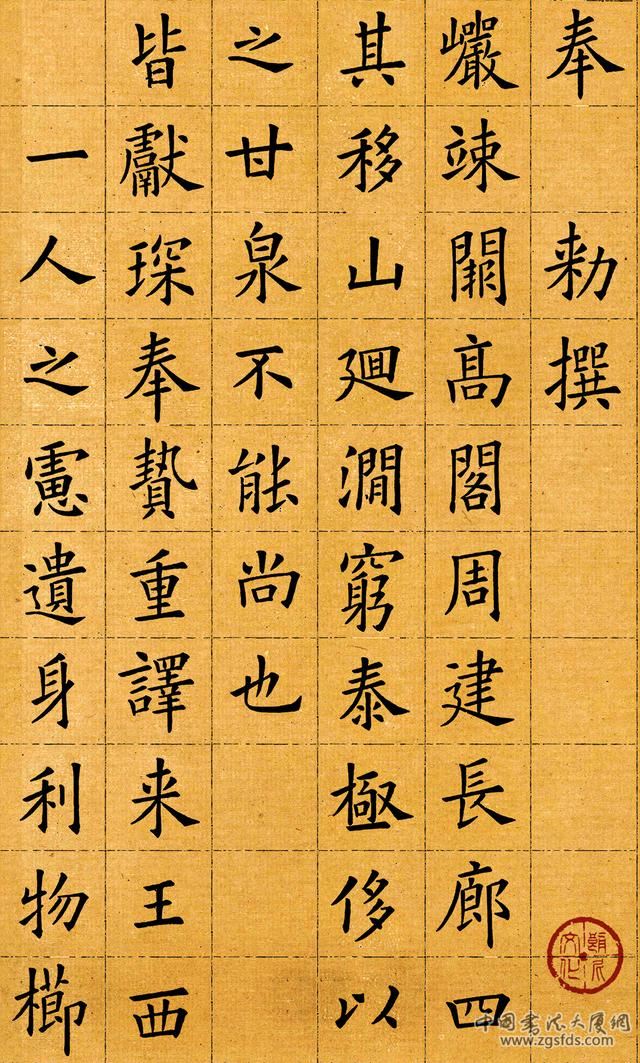 奉敕撰
巖竦闕高閣周建長廊四
其移山廻澗窮泰極侈以
之甘泉不能尚也
皆獻琛奉贄重譯来王西
一人之慮遺身利物櫛
中国书法大展网
www.zgsfds.com